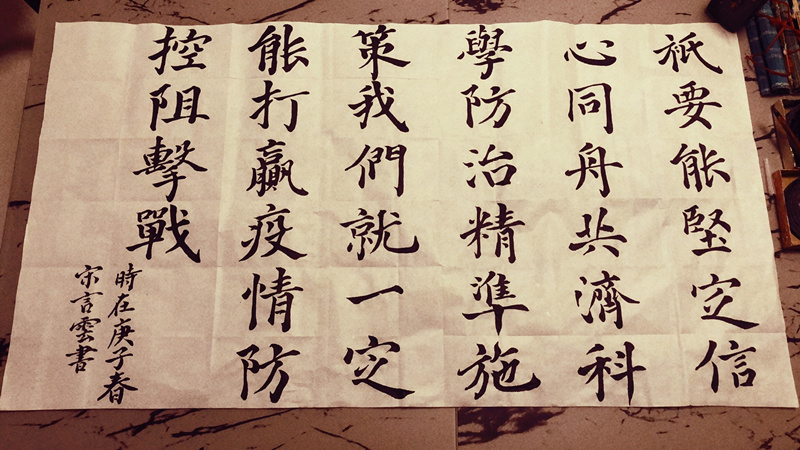 祇要能堅定信
心同舟共濟科
學防治精準施
策我們就一定
能打贏疫情防
控阻擊戰
時在庚子春
宋言雲書